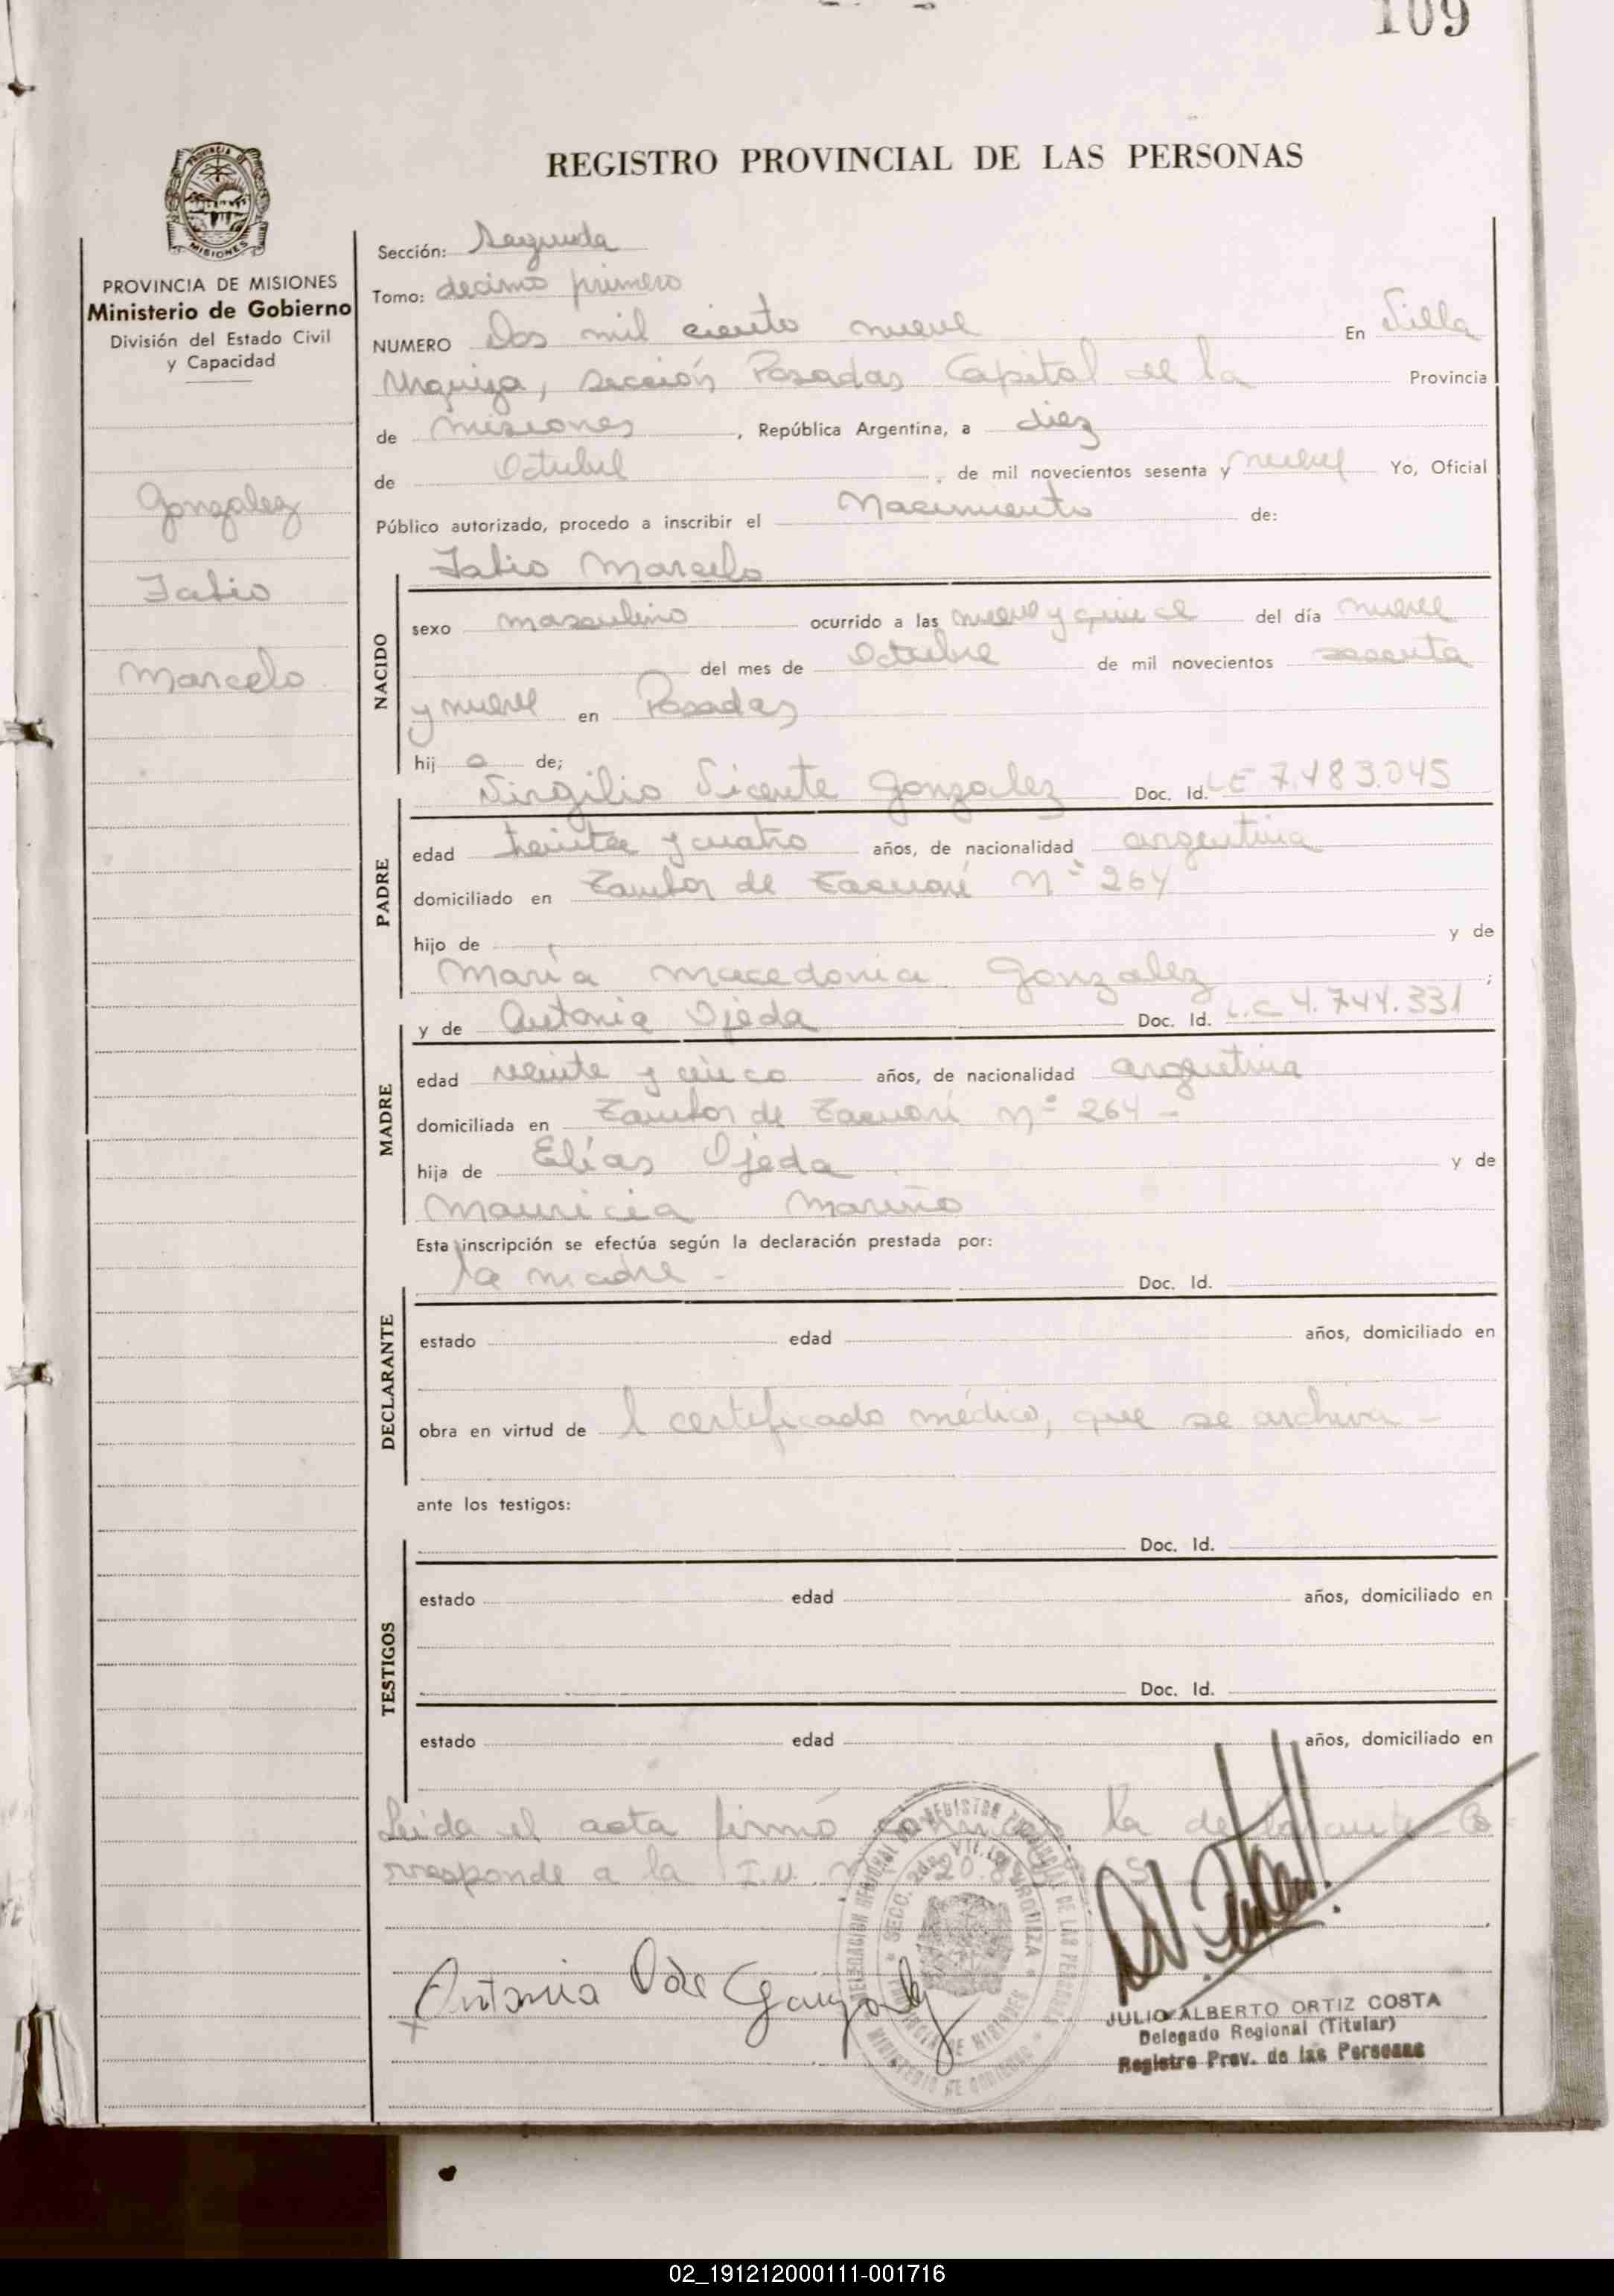 109
REGISTRO PROVINCIAL DE LAS PERSONAS
PROVINCIA DE MISIONES
MISIONES
Ministerio de Gobierno
División del Estado Civil
y Capacidad
Gonzalez
Fabio
Marcelo
Sección: Segunda
Tomo: decimo primero
NUMERO Dos mil ciento nueve En Villa
Urquiza, sección Posadas Capital de la Provincia
de Misiones, República Argentina, a diez
de Octubre, de mil novecientos sesenta y nueve Yo, Oficial
Público autorizado, procedo a inscribir el Nacimiento de:
Fabio Marcelo
NACIDO
sexo masculino ocurrido a las nueve y quince del día nueve
del mes de Octubre de mil novecientos sesenta
y nueve en Posadas
hij o de;
Virgilio Vicente Gonzalez Doc. Id. LE 7.483.045
PADRE
edad treinta y cuatro años, de nacionalidad argentina
domiciliado en Tambor de Tacuarí Nº 264
hijo de y de
María Macedonia Gonzalez ;
y de Antonia Ojeda Doc. Id. L.C 4.744.331
MADRE
edad veinte y cinco años, de nacionalidad argentina
domiciliada en Tambor de Tacuarí Nº 264 -
hija de Elías Ojeda y de
Mauricia Mariño
Esta inscripción se efectúa según la declaración prestada por:
la madre - Doc. Id.
DECLARANTE
estado edad años, domiciliado en
obra en virtud de l certificado médico, que se archiva -
ante los testigos:
Doc. Id.
TESTIGOS
estado edad años, domiciliado en
Doc. Id.
estado edad años, domiciliado en
Leída el acta firmó conmigo la declarante - Co
rresponde a la I.U. 20.8
DELEGACION REGIONAL DEL REGISTRO PROVINCIAL DE LAS PERSONAS
SECC. 2da. VILLA URQUIZA
PROVINCIA DE MISIONES
MINISTERIO DE GOBIERNO
Antonia O de Gonzalez
JULIO ALBERTO ORTIZ COSTA
Delegado Regional (Titular)
Registro Prov. de las Personas
02_191212000111-001716